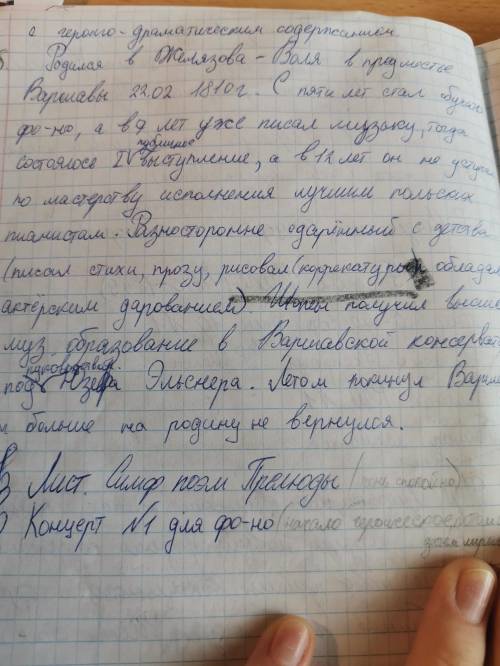 с героико-драматическим содержанием.
Родился в Желязова-Воля в предместье
Варшавы 22.02 1810г. С пяти лет стал
фо-но, а в 9 лет уже писал музыку, тогда
публичное
состоялось выступление, а в 12 лет он не уступал
по мастерству исполнения лучшим польских
пианистам. Разносторонне одарённый с детства
(писал стихи, прозу, рисовал (корректуры обладал
актёрским дарованием) Шопен получил высшее
муз. образование в Варшавской консерват
руководством.
под Юзефа Эльснера. Летом покинул Варша
и больше на родину не вернулся.
Лист. Симф поэм Прелюды (спокойно)
Концерт №1 для фо-но (начало героическое